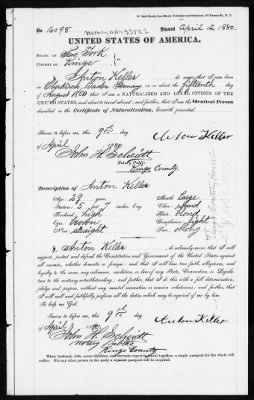 No. 16098
Issued April 12 1880.
UNITED STATES OF AMERICA.
State of New York
County of Kings
I, Anton Keller do swear that I was born
in Baden Germany on the fifteenth day
of August 1850 that I am a NATURALIZED AND LOYAL CITIZEN OF THE
UNITED STATES, and about to travel abroad; and further, that I am the Identical Person
described in the Certificate of Naturalization, herewith presented.
Sworn to before me, this 9th day
of April 1880
Anton Keller
John H. Schmitt
Notary Public
Kings County.
Description of Anton Keller
Age: 29 years
Mouth: Large
Stature: 5 feet inches Eng.
Chin: round
Forehead: high
Hair: blond
Eyes: brown
Complexion: light
Nose: straight
Face: oval
I, Anton Keller do solemnly swear that I will
support, protect and defend the Constitution and Government of the United States against
all enemies, whether domestic or foreign; and that I will bear true faith, allegiance, and
loyalty to the same, any ordinance, resolution, or law of any State, Convention, or Legislature
to the contrary notwithstanding; and further, that I do this with a full determination,
pledge and purpose, without any mental reservation or evasion whatsoever; and further, that
I will well and faithfully perform all the duties which may be required of me by law.
So help me God.
Sworn to before me, this 9th day
of April 1880
Anton Keller
John H. Schmitt
Notary Public
Kings County